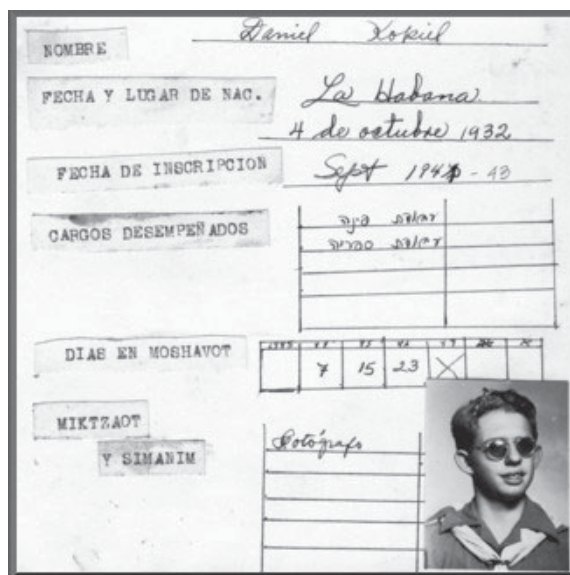 NOMBRE Daniel Kokiel
FECHA Y LUGAR DE NAC. La Habana
4 de octubre 1932
FECHA DE INSCRIPCION Sept - 43
CARGOS DESEMPEÑADOS
פינה
ספריה
DIAS EN MOSHAVOT
7 15 23
MIKTZAOT
Fotógrafo
Y SIMANIM